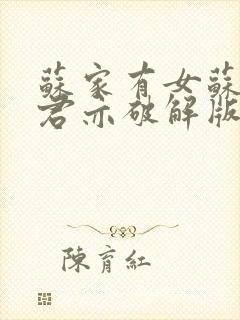 蘇家有女蘇
君亦破解版
陳育紅